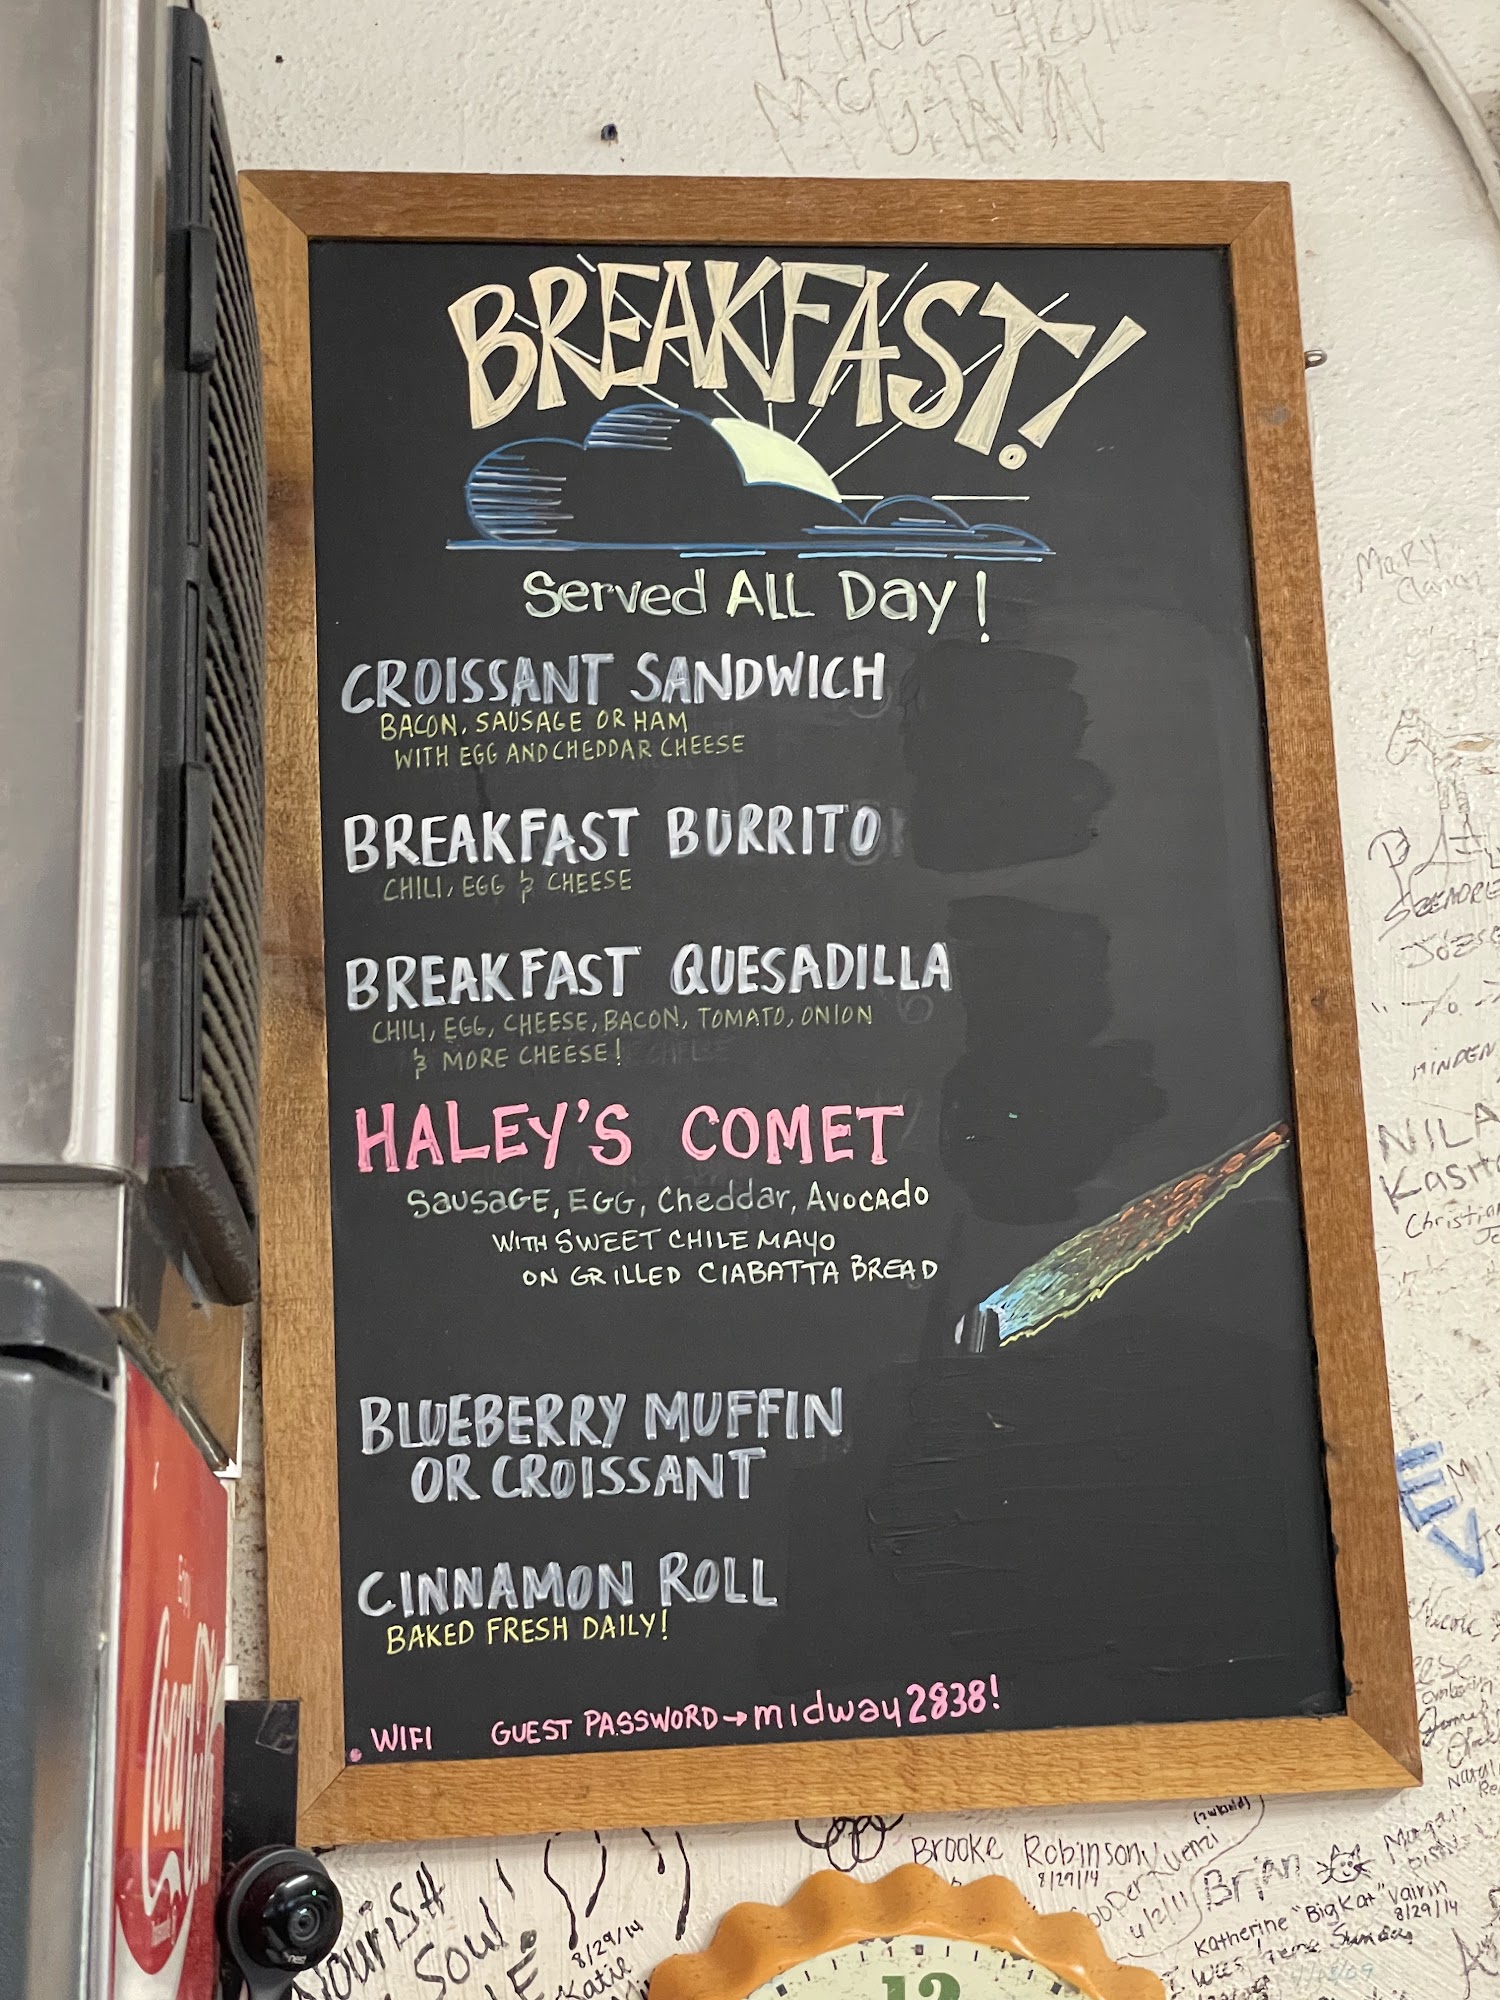 McGARVIN
BREAKFAST!
Served ALL Day!
CROISSANT SANDWICH
BACON, SAUSAGE OR HAM
WITH EGG AND CHEDDAR CHEESE
BREAKFAST BURRITO
CHILI, EGG & CHEESE
BREAKFAST QUESADILLA
CHILI, EGG, CHEESE, BACON, TOMATO, ONION
& MORE CHEESE!
HALEY'S COMET
SAUSAGE, EGG, Cheddar, Avocado
WITH SWEET CHILE MAYO
ON GRILLED CIABATTA BREAD
BLUEBERRY MUFFIN
OR CROISSANT
CINNAMON ROLL
BAKED FRESH DAILY!
WIFI GUEST PASSWORD→midway2838!
Enjoy
Coca-Cola
MARY
NILA
Christian
Nicole
Brooke Robinson
8/29/14
4/2/11
Brian
Katherine "BigKat" Vairin
8/29/14
NOURISH
Soul!
8/29/14
Katie
12